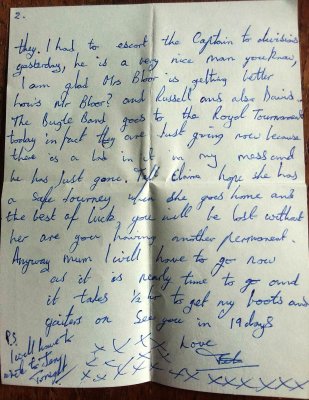 2.
they. I had to escort the Captain to divisions
yesterday, he is a very nice man you know,
I am glad Mrs Bloor is getting better
how's Mr Bloor? and Russell and also David.
The Bugle Band goes to the Royal Tournament
today in fact they are just going now because
there is a lad in it in my mess and
he has just gone. Tell Elaine hope she has
a safe Journey when she goes home and
the best of luck you will be lost without
her are you having another permanent.
Anyway mum I will have to go now
as it is nearly time to go and
it takes 1/2 hr to get my boots and
gaiters on See you in 19 days
Love
P.S.
I will have to
write to
tonight
x x x x
x x x x
x x x x x x x x x x x x